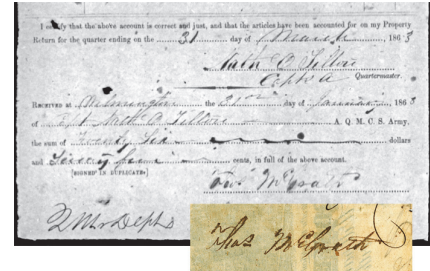 I certify that the above account is correct and just, and that the articles have been accounted for on my Property
Return for the quarter ending on the 31 day of March 1863
Quartermaster.
RECEIVED at Wilmington the 21 day of January 1863
of A. Q. M. C. S. Army,
the sum of Twenty Six dollars
and Seventy cents, in full of the above account.
[SIGNED IN DUPLICATE]
Thos McGrath
Q Mrs Dept
Thos McGrath